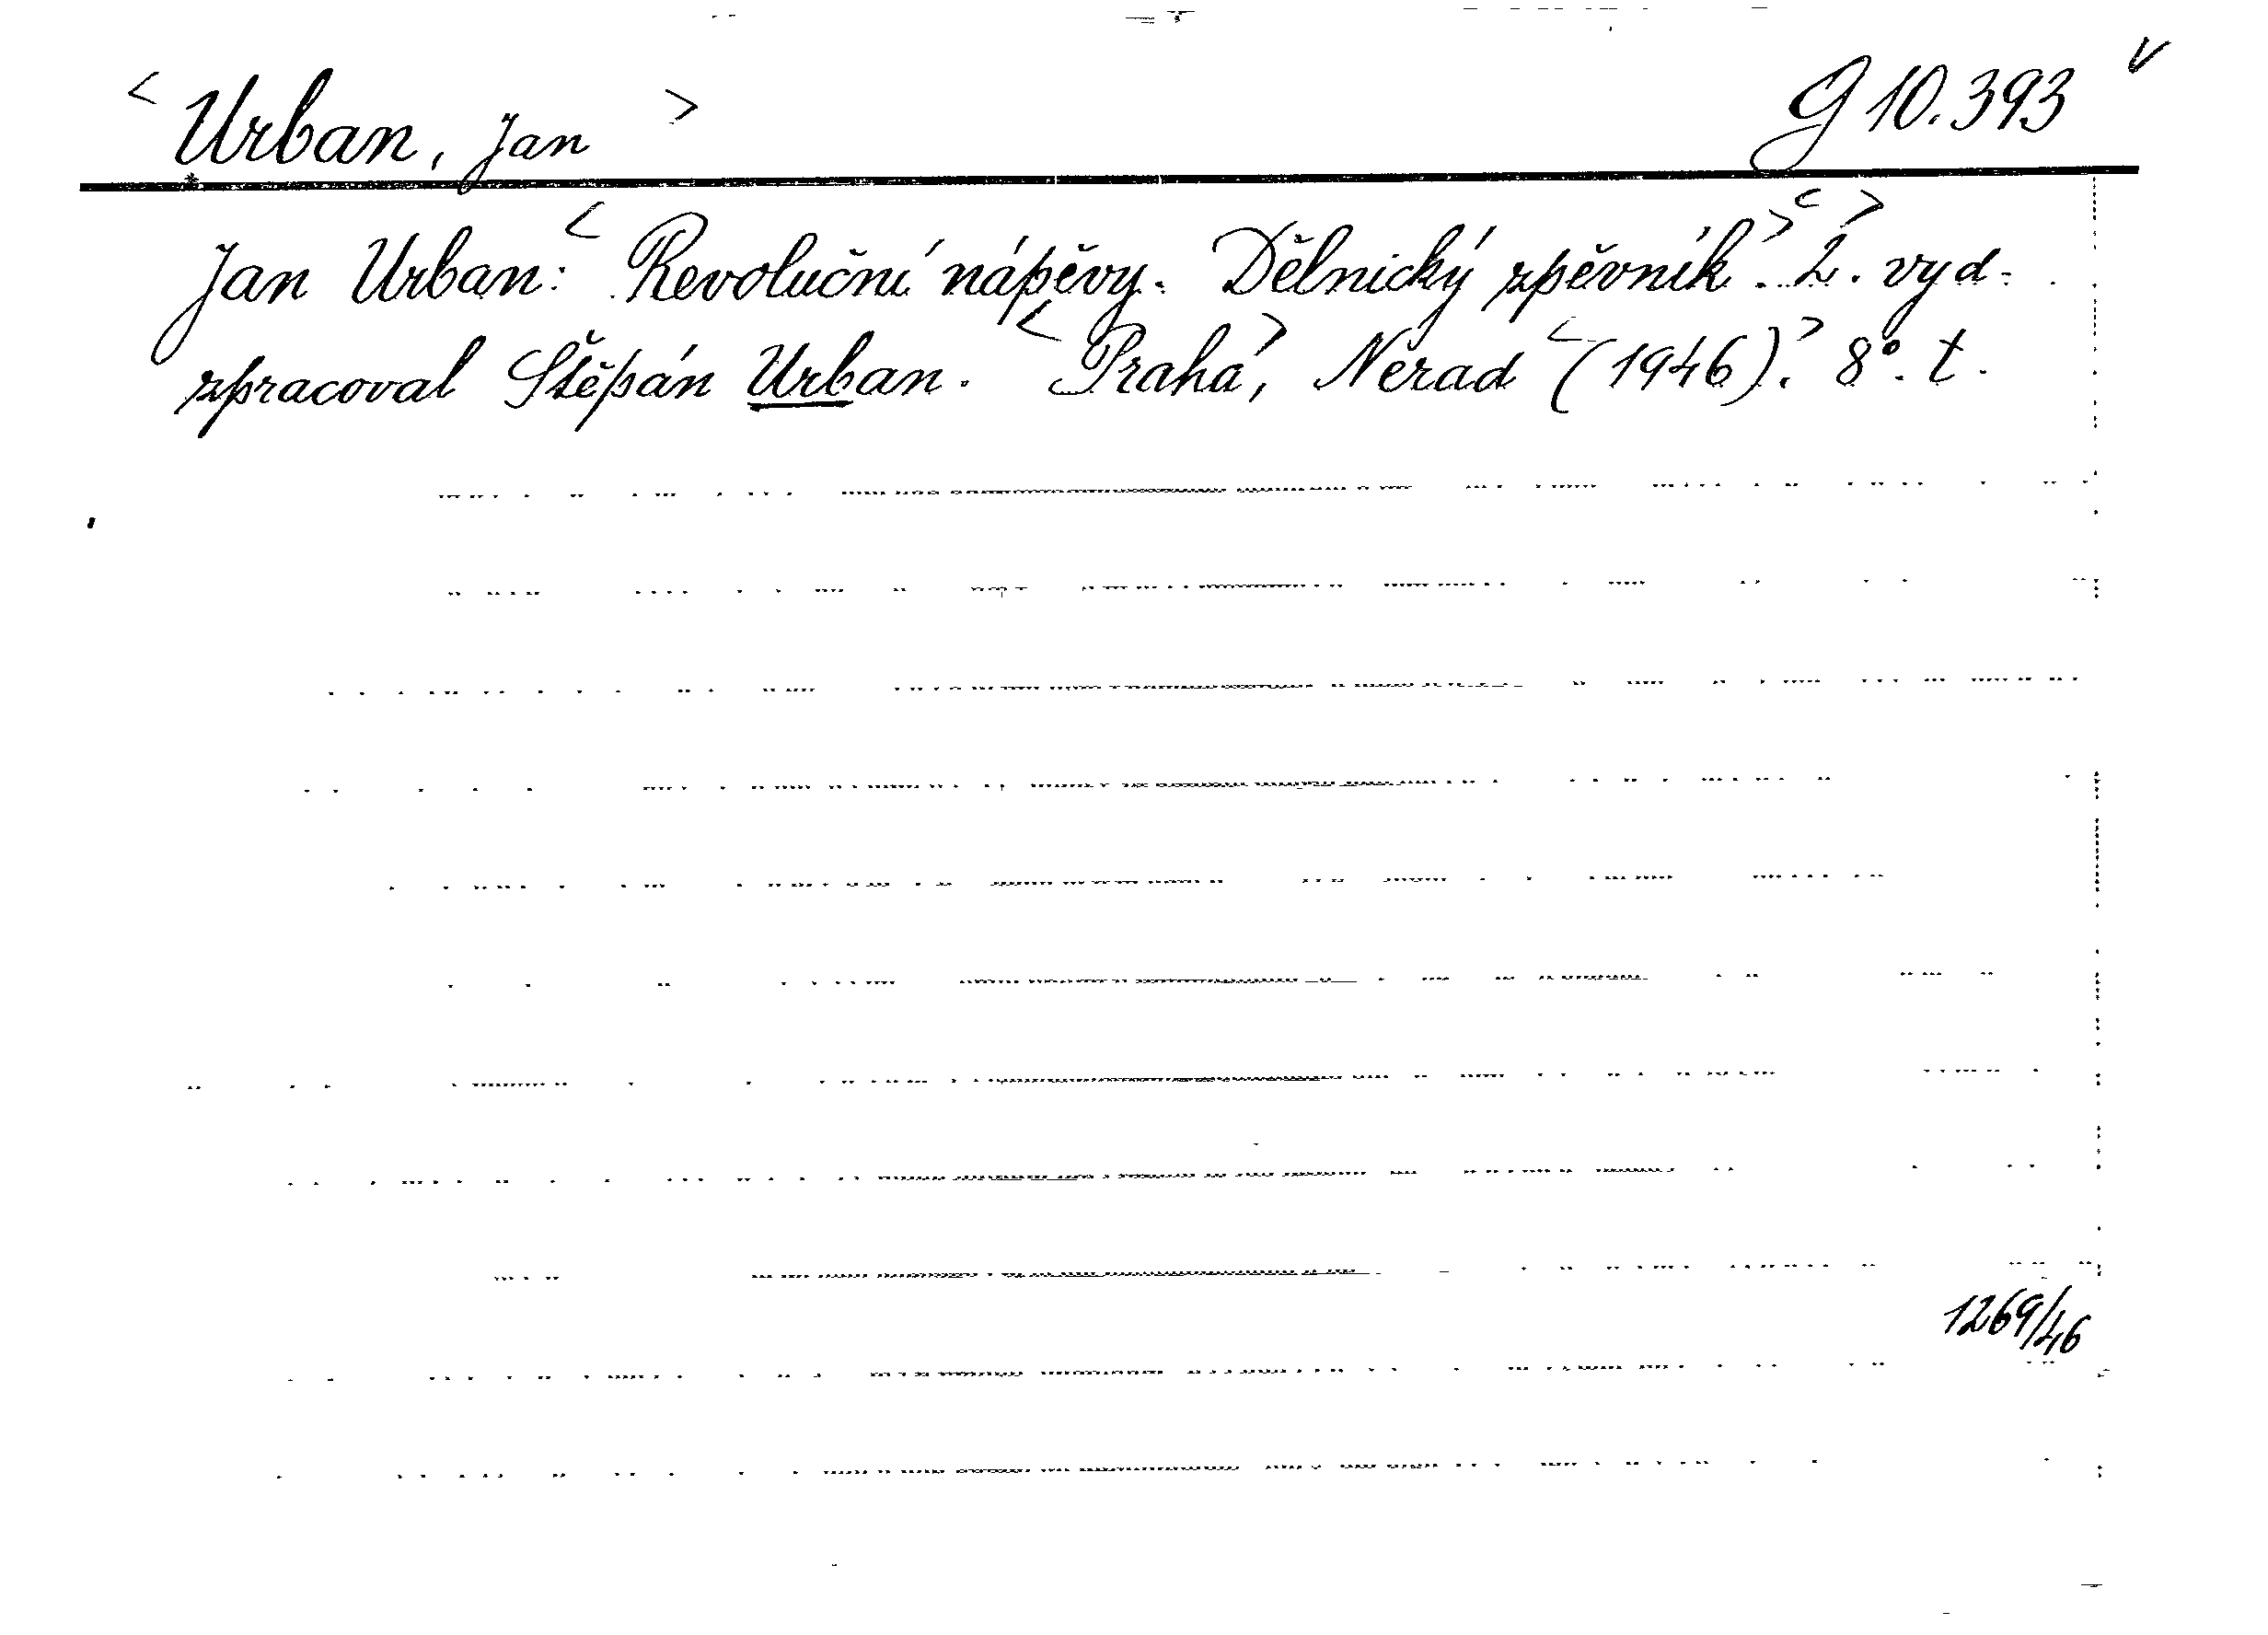 < Urban, Jan > G 10.393 v
Jan Urban: < Revoluční nápěvy. Dělnický zpěvník.> <2.> vyd.
zpracoval Štěpán Urban. <Praha>, Nerad <(1946).> 8°. t.
1269/46